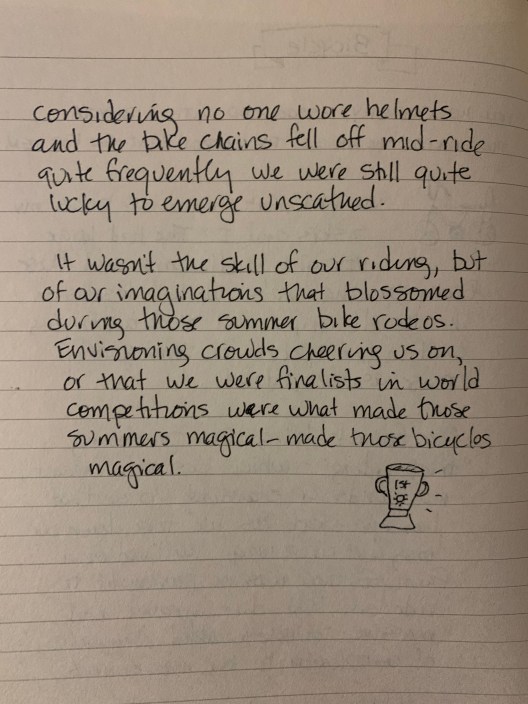 considering no one wore helmets
and the bike chains fell off mid-ride
quite frequently we were still quite
lucky to emerge unscathed.
It wasn't the skill of our riding, but
of our imaginations that blossomed
during those summer bike rodeos.
Envisioning crowds cheering us on,
or that we were finalists in world
competitions were what made those
summers magical - made those bicycles
magical.
1st